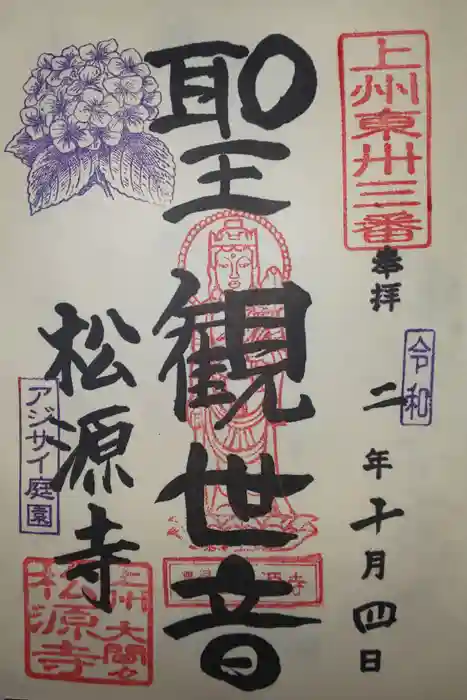 上州東卅三番
奉拝
令和
二年十月四日
聖観世音
松源寺
アジサイ庭園
松源寺